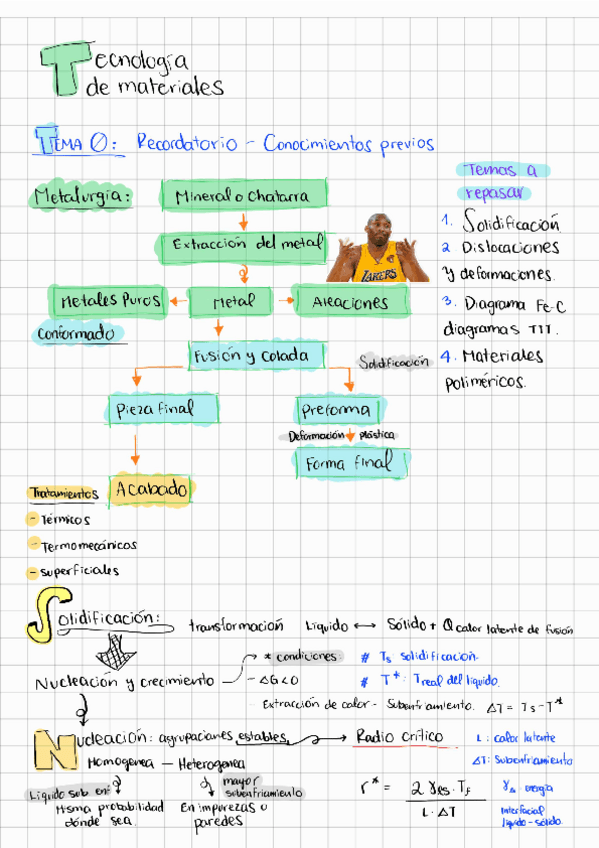 Tecnología
de materiales
TEMA 0: Recordatorio - Conocimientos previos
Temas a
repasar
Metalurgia:
Mineral o Chatarra
1. Solidificación
Extracción del metal
2 Dislocaciones
LAKERS
y deformaciones.
Metales Puros
Metal
Aleaciones
3. Diagrama Fe-C
diagramas TTT.
Conformado
Fusión y Colada
Solidificación
4. Materiales
poliméricos.
Pieza final
Preforma
Deformación plástica
Forma final
Tratamientos
Acabado
- Térmicos
- Termomecánicos
- superficiales
Solidificación: transformación Líquido ↔ Sólido + Q calor latente de fusión
* condiciones: # Ts solidificación.
Nucleación y crecimiento → - ΔG<0 # T* - T real del líquido.
Extracción de calor - Subenfriamiento. ΔT = Ts - T*
Nucleación: agrupaciones estables, → Radio crítico L: calor latente
Homogenea - Heterogenea ΔT: Subenfriamiento
Líquido sub en: mayor subenfriamiento
Misma probabilidad dónde sea.
En impurezas o paredes
r* = 2 γLS · Tf / L · ΔT
energía
interfacial
líquido-sólido.